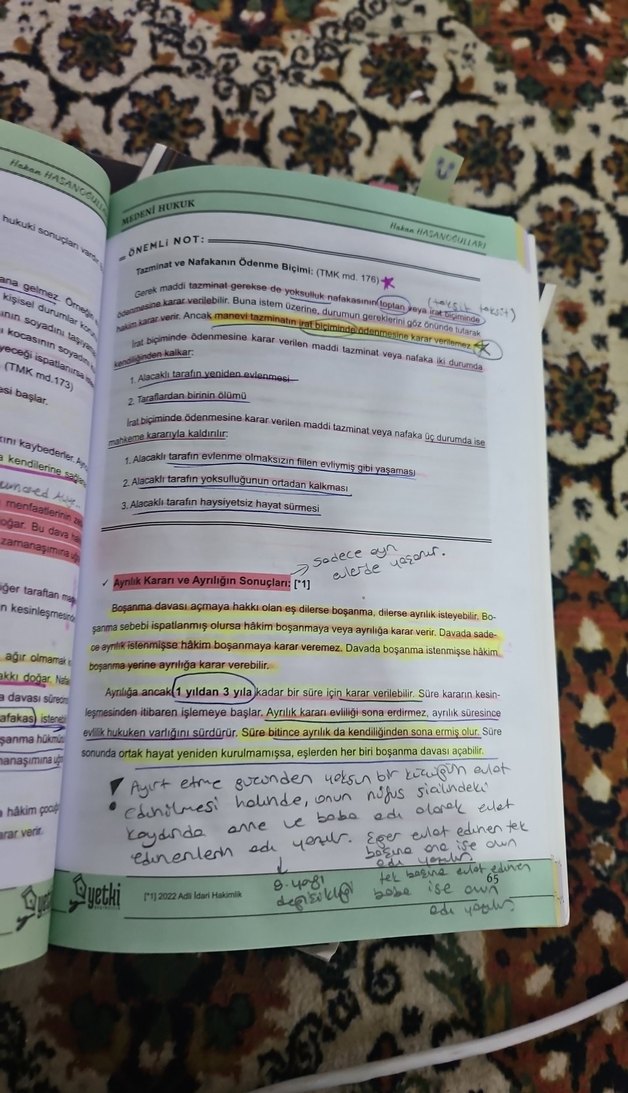 Hakan HASANOĞULLARI
hukuki sonuçları
ana gelmez. Örneğin
kişisel durumlar
nın soyadını taşıya
kocasının soyadını
yeceği ispatlanırsa
(TMK md.173)
esi başlar.
kını kaybederler.
a kendilerine
menfaatlerinin
oğar. Bu dava
zamanaşımına
iğer taraftan
n kesinleşmesinden
ağır olmamak
akkı doğar.
a davası
afakası)
şanma
manaşımına
a hâkim
arar verir.
MEDENİ HUKUK
Hakan HASANOĞULLARI
ÖNEMLİ NOT:
Tazminat ve Nafakanın Ödenme Biçimi: (TMK md. 176)
(taksit taksit)
Gerek maddi tazminat gerekse de yoksulluk nafakasının toptan veya irat biçiminde
ödenmesine karar verilebilir. Buna istem üzerine, durumun gereklerini göz önünde tutarak
hakim karar verir. Ancak manevi tazminatın irat biçiminde ödenmesine karar verilemez.
İrat biçiminde ödenmesine karar verilen maddi tazminat veya nafaka iki durumda
kendiliğinden kalkar:
1. Alacaklı tarafın yeniden evlenmesi
2. Taraflardan birinin ölümü
İrat biçiminde ödenmesine karar verilen maddi tazminat veya nafaka üç durumda ise
mahkeme kararıyla kaldırılır:
1. Alacaklı tarafın evlenme olmaksızın fiilen evliymiş gibi yaşaması
2. Alacaklı tarafın yoksulluğunun ortadan kalkması
3. Alacaklı tarafın haysiyetsiz hayat sürmesi
→ sadece ayrı
evlerde yaşanır.
✓ Ayrılık Kararı ve Ayrılığın Sonuçları: [*1]
Boşanma davası açmaya hakkı olan eş dilerse boşanma, dilerse ayrılık isteyebilir. Bo-
şanma sebebi ispatlanmış olursa hâkim boşanmaya veya ayrılığa karar verir. Davada sade-
ce ayrılık istenmişse hâkim boşanmaya karar veremez. Davada boşanma istenmişse hâkim
boşanma yerine ayrılığa karar verebilir.
Ayrılığa ancak 1 yıldan 3 yıla kadar bir süre için karar verilebilir. Süre kararın kesin-
leşmesinden itibaren işlemeye başlar. Ayrılık kararı evliliği sona erdirmez, ayrılık süresince
evlilik hukuken varlığını sürdürür. Süre bitince ayrılık da kendiliğinden sona ermiş olur. Süre
sonunda ortak hayat yeniden kurulmamışsa, eşlerden her biri boşanma davası açabilir.
Ayırt etme gücünden yoksun bir küçüğün evlat
edinilmesi halinde, onun nüfus sicilindeki
kaydında anne ve baba adı olarak evlat
edinenlerin adı yazılır. Eğer evlat edinen tek
başına ana ise onun
adı yazılır.
tek başına evlat edinen
baba ise onun
adı yazılır.
9. yargı
değişikliği
65
yetki
[*1] 2022 Adli İdari Hakimlik